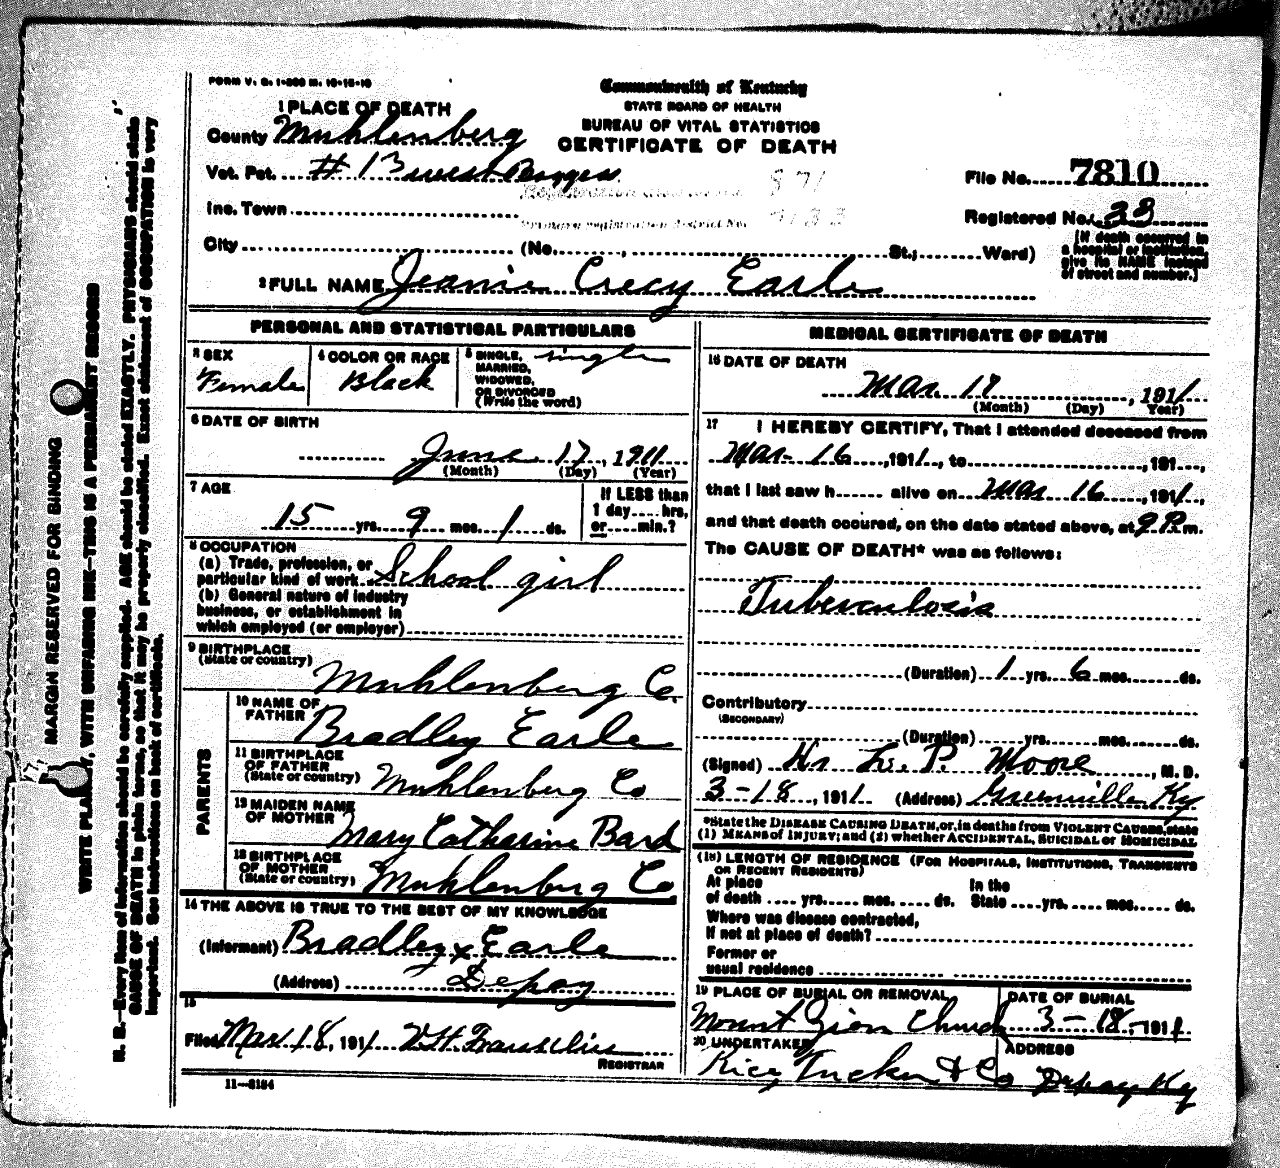 FORM V. S. 1-200 M. 10-15-10
Commonwealth of Kentucky
STATE BOARD OF HEALTH
BUREAU OF VITAL STATISTICS
CERTIFICATE OF DEATH
1 PLACE OF DEATH
County Muhlenberg
Vot. Pct. #13 west
871
Inc. Town
City (No. , St.; Ward)
File No. 7810
Registered No. 33
[If death occurred in a hospital or institution, give its NAME instead of street and number.]
2 FULL NAME Jeanie Crecy Earle
PERSONAL AND STATISTICAL PARTICULARS
3 SEX Female
4 COLOR OR RACE Black
5 SINGLE, MARRIED, WIDOWED, OR DIVORCED (Write the word) single
6 DATE OF BIRTH
June 17, 1911
(Month) (Day) (Year)
7 AGE
15 yrs. 9 mos. 1 ds.
If LESS than 1 day.... hrs, or....min.?
8 OCCUPATION
(a) Trade, profession, or particular kind of work School girl
(b) General nature of industry business, or establishment in which employed (or employer)
9 BIRTHPLACE (State or country) Muhlenberg Co.
PARENTS
10 NAME OF FATHER Bradley Earle
11 BIRTHPLACE OF FATHER (State or country) Muhlenberg Co
12 MAIDEN NAME OF MOTHER Mary Catharine Bard
13 BIRTHPLACE OF MOTHER (State or country) Muhlenberg Co
14 THE ABOVE IS TRUE TO THE BEST OF MY KNOWLEDGE
(Informant) Bradley x Earle
(Address) Depoy
15
Filed Mar 18, 1911
REGISTRAR
11-3184
MEDICAL CERTIFICATE OF DEATH
16 DATE OF DEATH
Mar. 17, 1911
(Month) (Day) Year)
17 I HEREBY CERTIFY, That I attended deceased from
Mar. 16, 1911, to , 191 ,
that I last saw h alive on Mar 16, 1911,
and that death occured, on the date stated above, at 9 P. m.
The CAUSE OF DEATH* was as follows:
Tuberculosis
(Duration) 1 yrs. 6 mos. ds.
Contributory
(SECONDARY)
(Duration) yrs. mos. ds.
(Signed) L. P. Moore, M. D.
3-18, 1911 (Address) Greenville Ky
*State the DISEASE CAUSING DEATH, or, in deaths from VIOLENT CAUSES, state
(1) MEANS of INJURY; and (2) whether ACCIDENTAL, SUICIDAL or HOMICIDAL
(18) LENGTH OF RESIDENCE (FOR HOSPITALS, INSTITUTIONS, TRANSIENTS OR RECENT RESIDENTS)
At place of death .... yrs. mos. ds. In the State yrs. mos. ds.
Where was disease contracted, If not at place of death?
Former or usual residence
19 PLACE OF BURIAL OR REMOVAL Mount Zion Church
DATE OF BURIAL 3-18-1911
20 UNDERTAKER Rice Tucker & Co
ADDRESS Depoy Ky
MARGIN RESERVED FOR BINDING
WRITE PLAINLY, WITH UNFADING INK—THIS IS A PERMANENT RECORD
N. B.—Every item of information should be carefully supplied. AGE should be stated EXACTLY. PHYSICIANS should state
CAUSE OF DEATH in plain terms, so that it may be properly classified. Exact statement of OCCUPATION is very
important. See instructions on back of certificate.